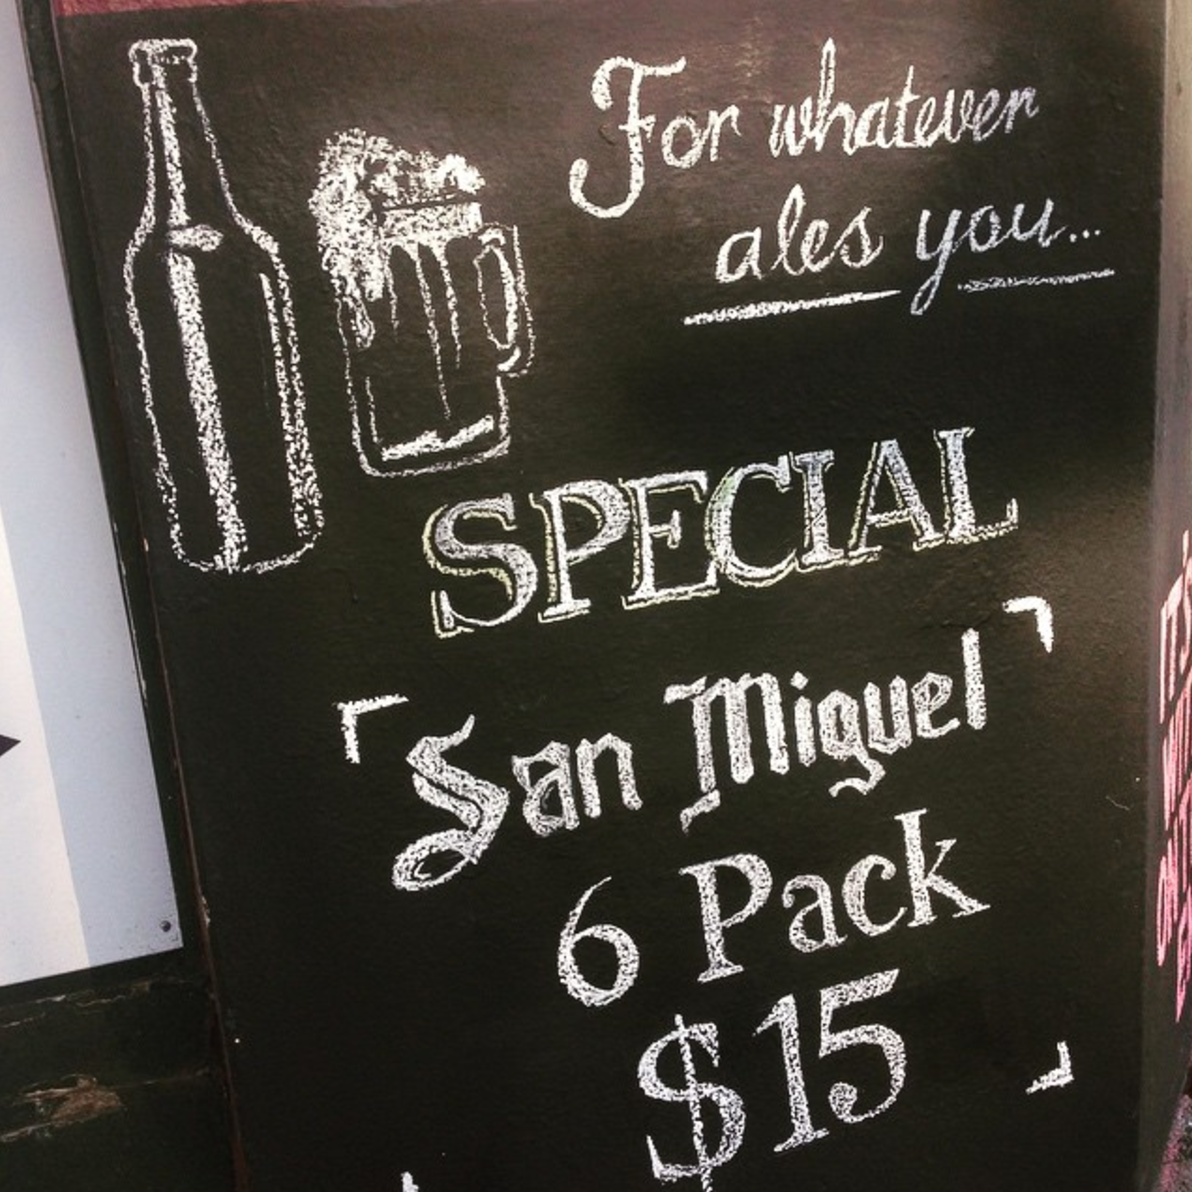 For whatever
ales you...
SPECIAL
San Miguel
6 Pack
$15
IT'S